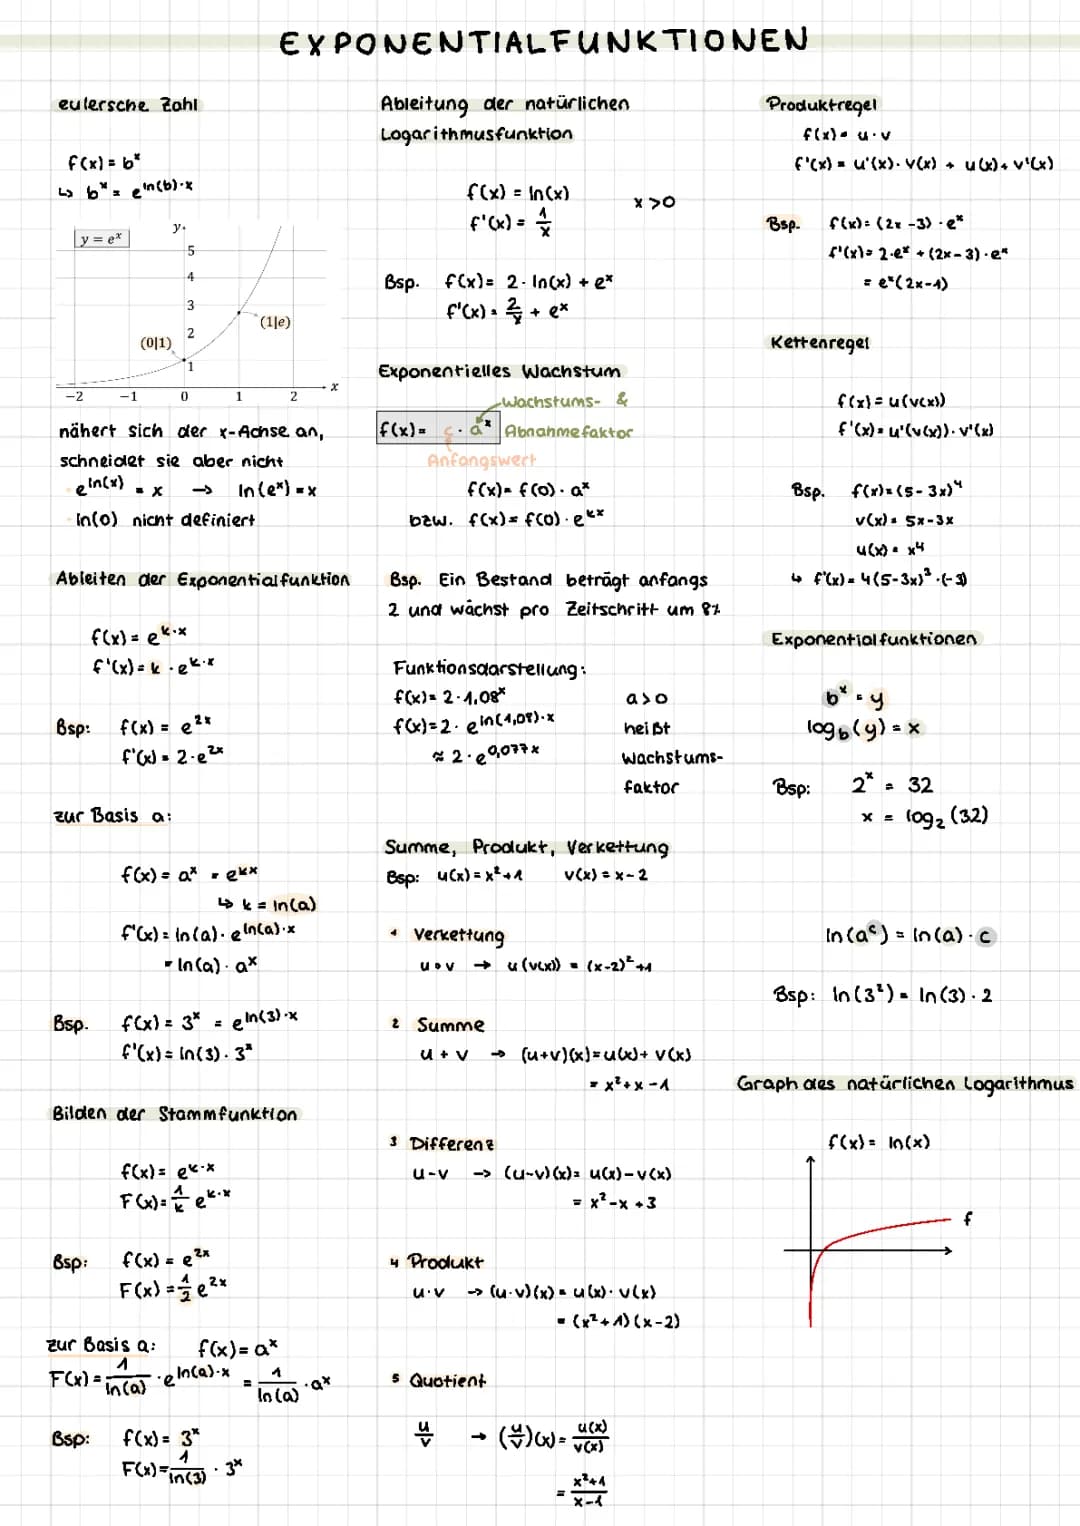 EXPONENTIALFUNKTIONEN
eulersche Zahl
f(x) = b^x
↳ b^x = e^ln(b)·x
y = e^x
y
5
4
3
2
1
(0|1)
(1|e)
-2 -1 0 1 2 x
nähert sich der x-Achse an,
schneidet sie aber nicht
e^ln(x) = x → ln(e^x) = x
· ln(0) nicht definiert
Ableiten der Exponentialfunktion
f(x) = e^k·x
f'(x) = k · e^k·x
Bsp: f(x) = e^2x
f'(x) = 2·e^2x
zur Basis a:
f(x) = a^x = e^kx
↳ k = ln(a)
f'(x) = ln(a) · e^ln(a)·x
= ln(a) · a^x
Bsp. f(x) = 3^x = e^ln(3)·x
f'(x) = ln(3) · 3^x
Bilden der Stammfunktion
f(x) = e^k·x
F(x) = 1/k e^k·x
Bsp: f(x) = e^2x
F(x) = 1/2 e^2x
zur Basis a: f(x) = a^x
F(x) = 1/ln(a) · e^ln(a)·x = 1/ln(a) · a^x
Bsp: f(x) = 3^x
F(x) = 1/ln(3) · 3^x
Ableitung der natürlichen
Logarithmusfunktion
f(x) = ln(x)
x > 0
f'(x) = 1/x
Bsp. f(x) = 2 · ln(x) + e^x
f'(x) = 2/x + e^x
Exponentielles Wachstum
Wachstums- &
f(x) = c · a^x Abnahmefaktor
Anfangswert
f(x) = f(0) · a^x
bzw. f(x) = f(0) · e^kx
Bsp. Ein Bestand beträgt anfangs
2 und wächst pro Zeitschritt um 8%
Funktionsdarstellung:
f(x) = 2·1,08^x
f(x) = 2 · e^ln(1,08)·x
≈ 2 · e^0,077x
a > 0
heißt
Wachstums-
faktor
Summe, Produkt, Verkettung
Bsp: u(x) = x²+1 v(x) = x-2
1 Verkettung
u∘v → u(v(x)) = (x-2)²+1
2 Summe
u + v → (u+v)(x) = u(x) + v(x)
= x²+x-1
3 Differenz
u-v → (u-v)(x) = u(x)-v(x)
= x²-x+3
4 Produkt
u·v → (u·v)(x) = u(x) · v(x)
= (x²+1)(x-2)
5 Quotient
u/v → (u/v)(x) = u(x)/v(x)
= x²+1/x-1
Produktregel
f(x) = u · v
f'(x) = u'(x) · v(x) + u(x) + v'(x)
Bsp. f(x) = (2x-3) · e^x
f'(x) = 2·e^x + (2x-3) · e^x
= e^x(2x-1)
Kettenregel
f(x) = u(v(x))
f'(x) = u'(v(x)) · v'(x)
Bsp. f(x) = (5-3x)^4
v(x) = 5x-3x
u(x) = x^4
↳ f'(x) = 4(5-3x)³ · (-3)
Exponentialfunktionen
b^x = y
log_b(y) = x
Bsp: 2^x = 32
x = log_2(32)
ln(a^c) = ln(a) · c
Bsp: ln(3²) = ln(3) · 2
Graph des natürlichen Logarithmus
f(x) = ln(x)
f